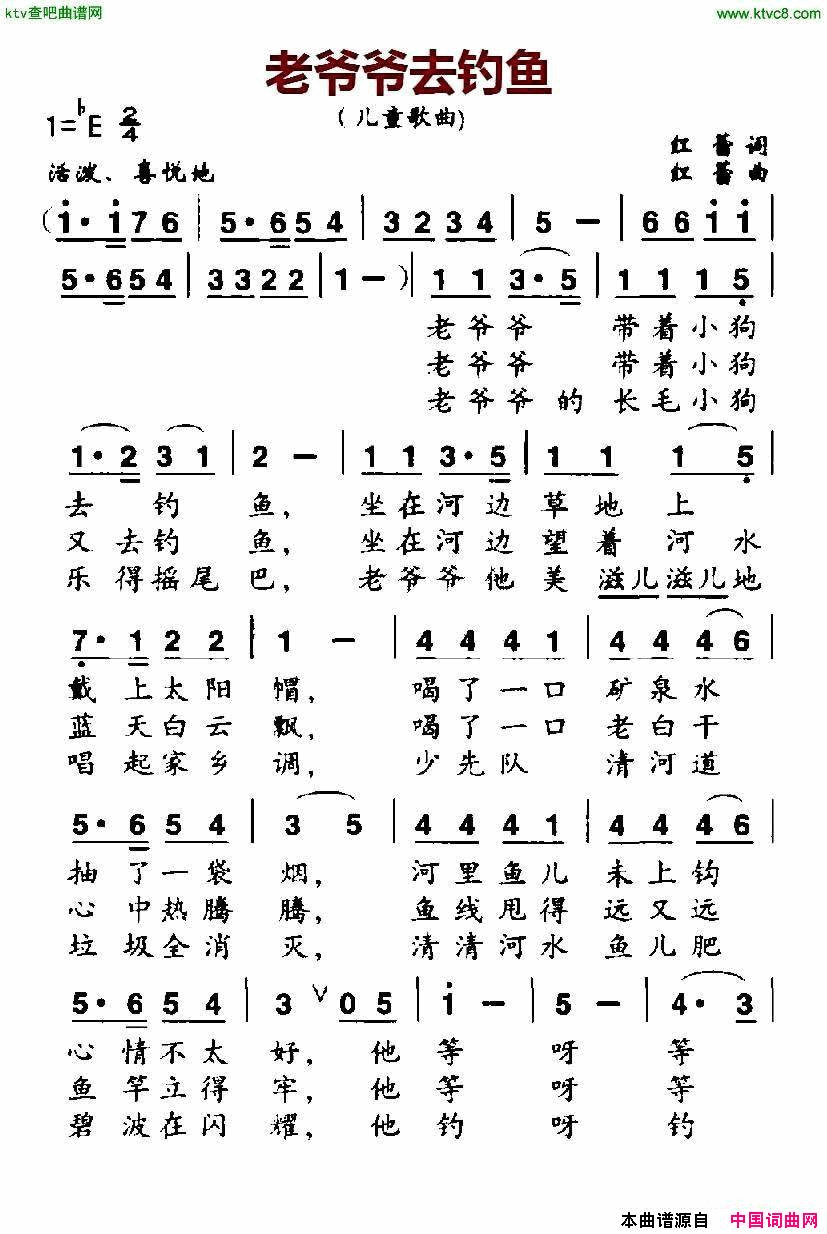 ktv查吧曲谱网
www.ktvc8.com
老爷爷去钓鱼
（儿童歌曲）
1=♭E 2/4
红蕾 词
活泼、喜悦地
红蕾 曲
（i·i76 | 5·654 | 3234 | 5 － | 66ii |
5·654 | 3322 | 1 － ）| 11 3·5 | 11 15
老爷爷 带着小狗
老爷爷 带着小狗
老爷爷的 长毛小狗
1·2 31 | 2 － | 11 3·5 | 11 1 5 |
去钓鱼，坐在河边草地上
又去钓鱼，坐在河边望着河水
乐得摇尾巴，老爷爷他美滋儿滋儿地
7·1 2 2 | 1 － | 4441 | 4446 |
戴上太阳帽，喝了一口矿泉水
蓝天白云飘，喝了一口老白干
唱起家乡调，少先队清河道
5·6 54 | 3 5 | 4441 | 4446 |
抽了一袋烟，河里鱼儿未上钩
心中热腾腾，鱼线甩得远又远
垃圾全消灭，清清河水鱼儿肥
5·6 54 | 3 ∨ 05 | i － | 5 － | 4·3 |
心情不太好，他等呀等
鱼竿立得牢，他等呀等
碧波在闪耀，他钓呀钓
本曲谱源自 中国词曲网